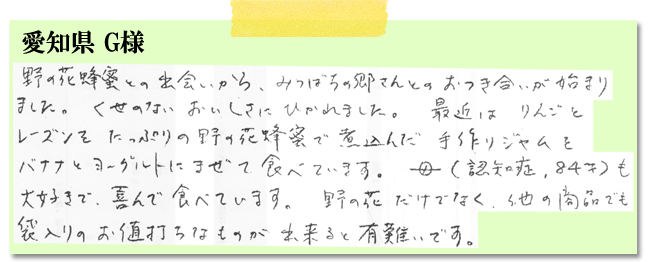 愛知県 G様
野の花蜂蜜との出会いから、みつばちの郷さんとのおつき合いが始まり
ました。くせのないおいしさにひかれました。最近はりんごと
レーズンをたっぷりの野の花蜂蜜で煮込んだ手作りジャムを
バナナとヨーグルトにまぜて食べています。母(認知症,84才)も
大好きで、喜んで食べています。野の花だけでなく、他の商品でも
袋入りのお値打ちなものが出来ると有難いです。